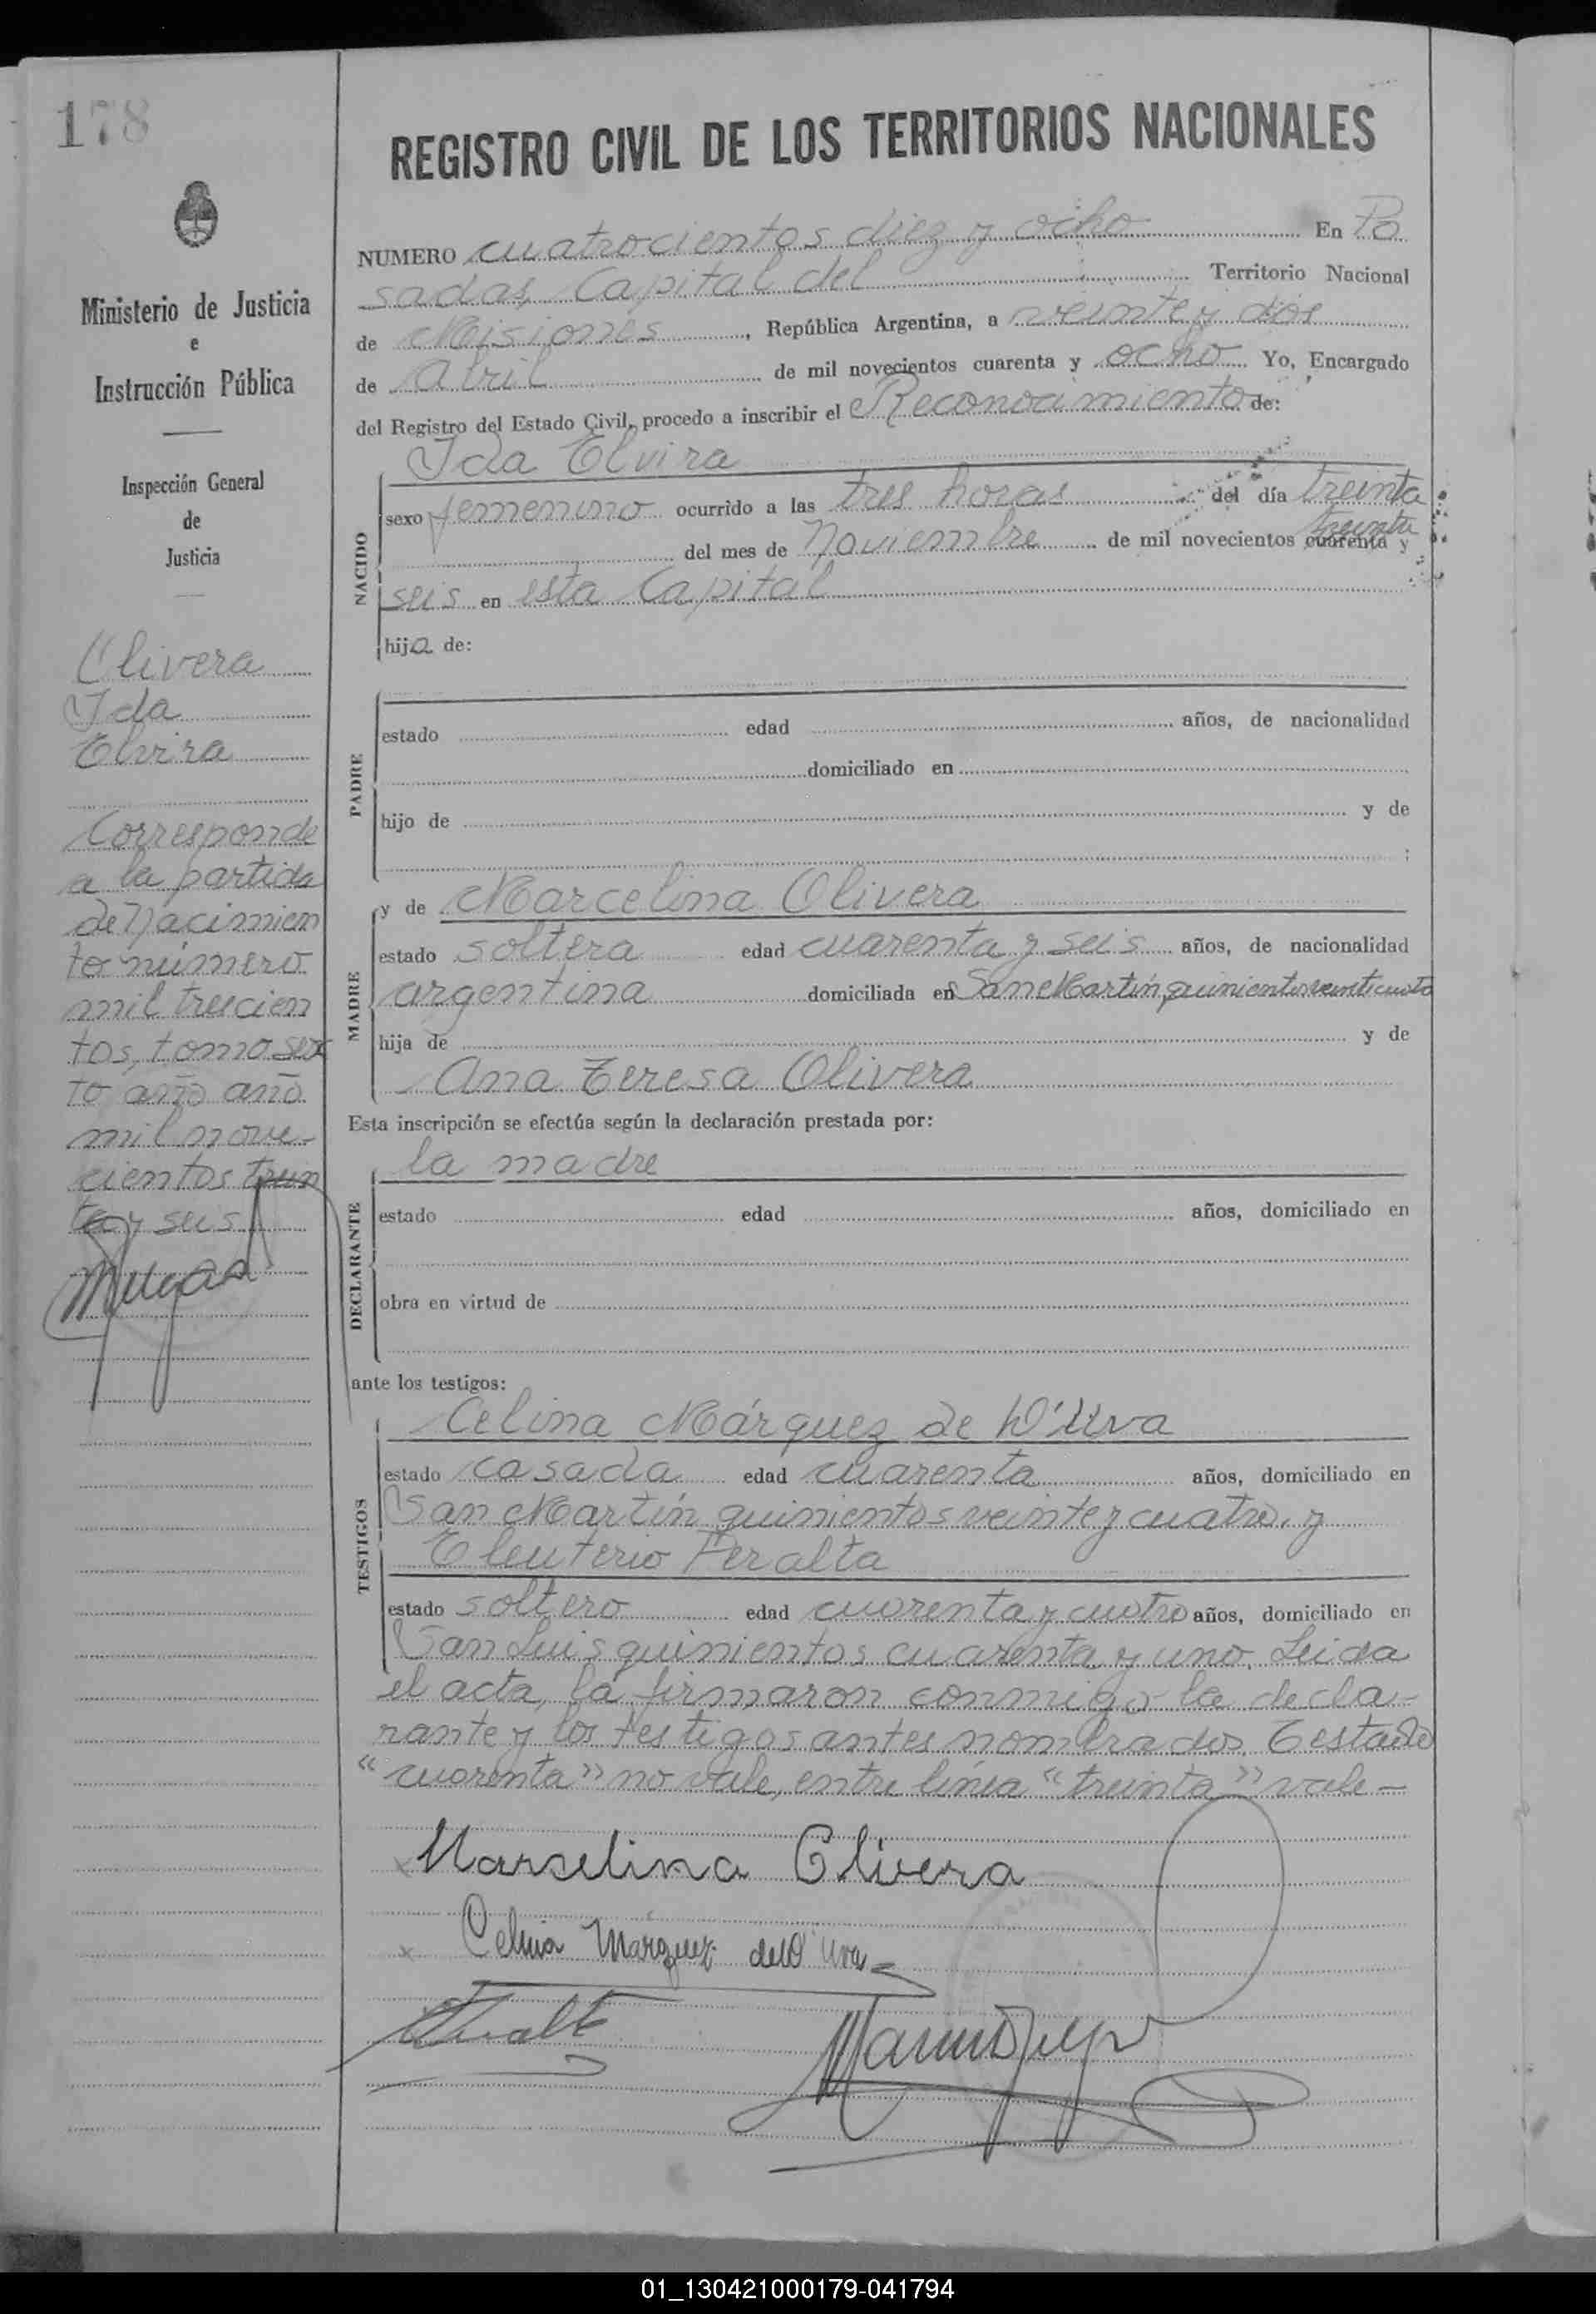 178
Ministerio de Justicia
e
Instrucción Pública
Inspección General
de
Justicia
Olivera
Ida
Elvira
Corresponde
a la partida
de Nacimien
to número
mil trescien
tos, tomo sex
to año año
mil nove-
cientos trein
ta y seis
REGISTRO CIVIL DE LOS TERRITORIOS NACIONALES
NUMERO cuatrocientos diez y ocho En Po
sadas, Capital del Territorio Nacional
de Misiones, República Argentina, a veinte y dos
de Abril de mil novecientos cuarenta y ocho Yo, Encargado
del Registro del Estado Civil, procedo a inscribir el Reconocimiento de:
Ida Elvira
NACIDO
sexo femenino ocurrido a las tres horas del día treinta
treinta
del mes de Noviembre de mil novecientos cuarenta y
seis en esta Capital
hija de:
PADRE
estado edad años, de nacionalidad
domiciliado en
hijo de y de
;
MADRE
y de Marcelina Olivera
estado soltera edad cuarenta y seis años, de nacionalidad
argentina domiciliada en San Martín quinientos veinticuatro
hija de y de
Ana Teresa Olivera
Esta inscripción se efectúa según la declaración prestada por:
DECLARANTE
la madre
estado edad años, domiciliado en
obra en virtud de
ante los testigos:
TESTIGOS
Celina Márquez de D'Uva
estado casada edad cuarenta años, domiciliado en
San Martín quinientos veinte y cuatro, y
Eleuterio Peralta
estado soltero edad cuarenta y cuatro años, domiciliado en
San Luis quinientos cuarenta y uno. Leida
el acta, la firmaron conmigo la decla-
rante y los testigos antes nombrados. Testado
"cuarenta" no vale, entre línea "treinta" vale-
Marselina Olivera
Celina Márquez de D'Uva
01_130421000179-041794